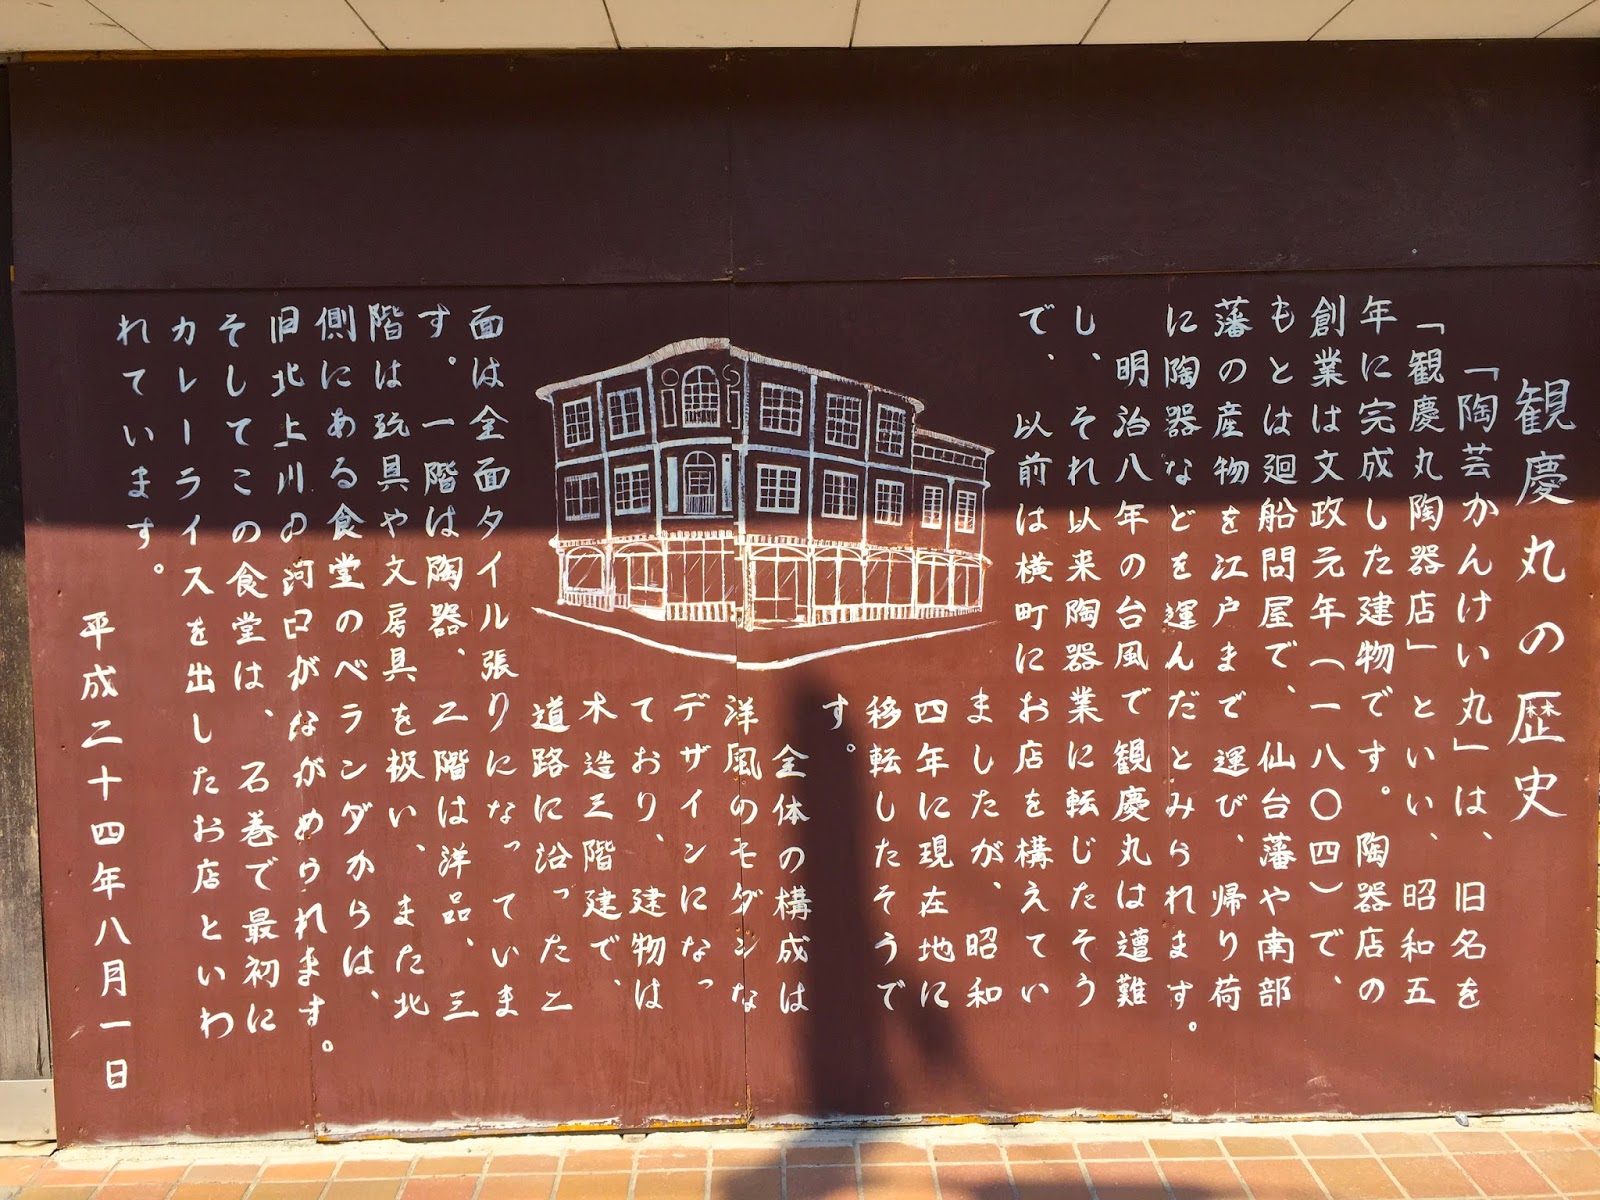 観慶丸の歴史
「陶芸かんけい丸」は、旧名を
「観慶丸陶器店」といい、昭和五
年に完成した建物です。陶器店の
創業は文政元年(一八〇四)で、
もとは廻船問屋で、仙台藩や南部
藩の産物を江戸まで運び、帰り荷
に陶器などを運んだとみられます。
明治八年の台風で観慶丸は遭難
し、それ以来陶器業に転じたそう
で、以前は横町にお店を構えてい
ましたが、昭和
四年に現在地に
移転したそうで
す。
全体の構成は
洋風のモダンな
デザインになっ
ており、建物は
木造三階建で、
道路に沿った二
面は全面タイル張りになっていま
す。一階は陶器、二階は洋品、三
階は玩具や文房具を扱い、また北
側にある食堂のベランダからは、
旧北上川の河口がながめられます。
そしてこの食堂は、石巻で最初に
カレーライスを出したお店といわ
れています。
平成二十四年八月一日